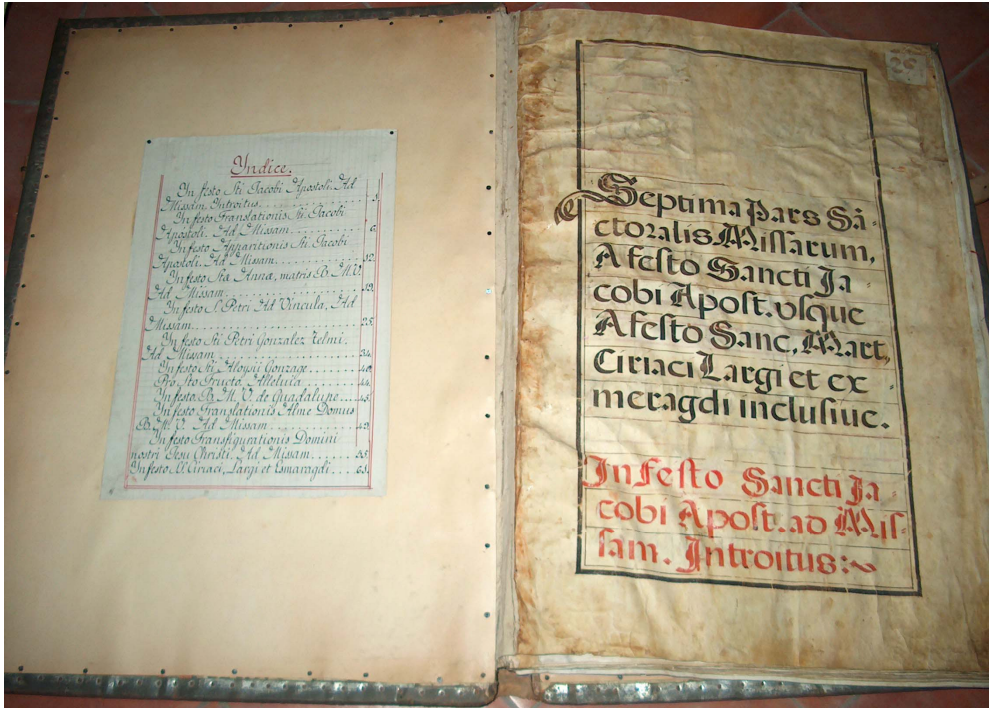 Yndice.
Yn festo Sti Jacobi Apostoli. Ad
Missam. Introitus. 1
Yn festo Translationis Sti Jacobi
Apostoli. Ad Missam. 6
Yn festo Apparitionis Sti Jacobi
Apostoli. Ad Missam. 12
Yn festo Sta Anna, matris B. M. V.
Ad Missam. 19
Yn festo S. Petri Ad Vincula, Ad
Missam. 25
Yn festo Sti Petri Gonzalez Telmi.
Ad Missam. 34
Yn festo Sti Aloysii Gonzage. 40
Pro Sto Structo, Alleluia. 44
Yn festo B. M. V. de Guadalupe. 45
Yn festo Translationis Alme Domus
B. M. V. Ad Missam. 49
Yn festo Transfigurationis Domini
nostri Jesu Christi. Ad Missam. 55
Yn festo S. Ciriaci, Largi et Esmaragdi. 63
25
Septima Pars Sa-
ctoralis Missarum,
A festo Sancti Ja
cobi Apost. vsque
A festo Sanc. Mart,
Ciriaci Largi et ex
meragdi inclusiue.
In festo Sancti Ja
cobi Apost. ad Mis-
sam. Introitus:~